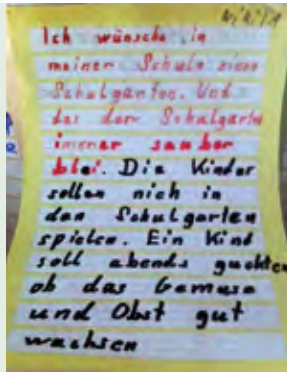 Ich wünsche in
meiner Schule einen
Schulgarten. Und
das der Schulgarten
immer sauber
blei. Die Kinder
sollen nich in
den Schulgarten
spielen. Ein Kind
soll abends guckten
ob das Gemuse
und Obst gut
wachsen